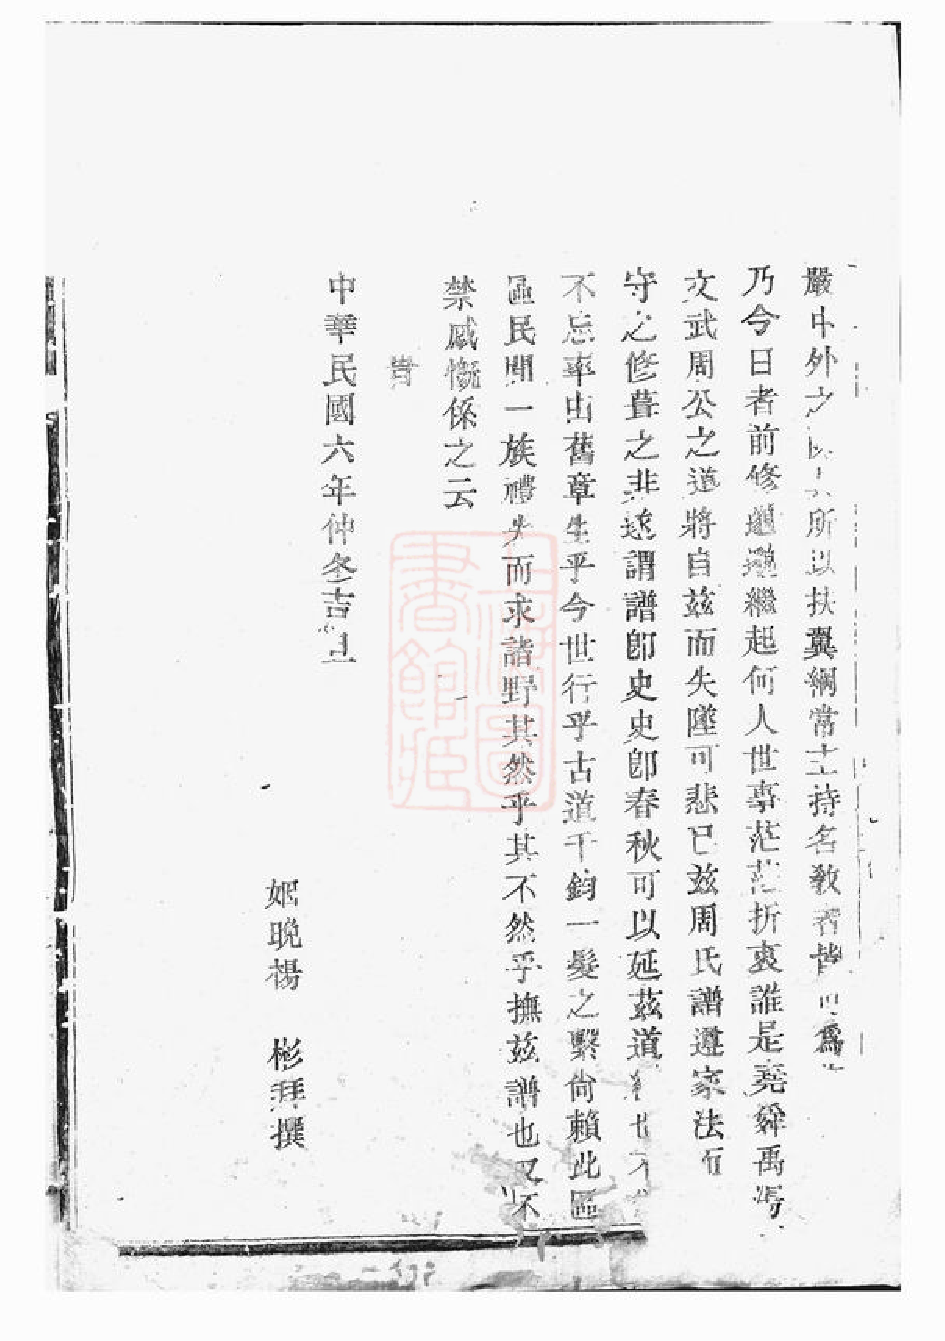 嚴中外之所以扶翼綱常主持名教者皆為
乃今日者前修邈邈繼起何人世事茫茫折衷誰是堯舜禹湯
文武周公之道將自茲而失墜可悲已茲周氏譜遵家法而
守之修葺之非遂謂譜即史史即春秋可以延茲道
不忘率由舊章生乎今世行乎古道千鈞一髮之繫尚賴此區
區民間一族禮失而求諸野其然乎其不然乎撫茲譜也又不
禁感慨係之云
時
中華民國六年仲冬吉旦
姻晚楊 彬拜撰
上海圖
書館藏